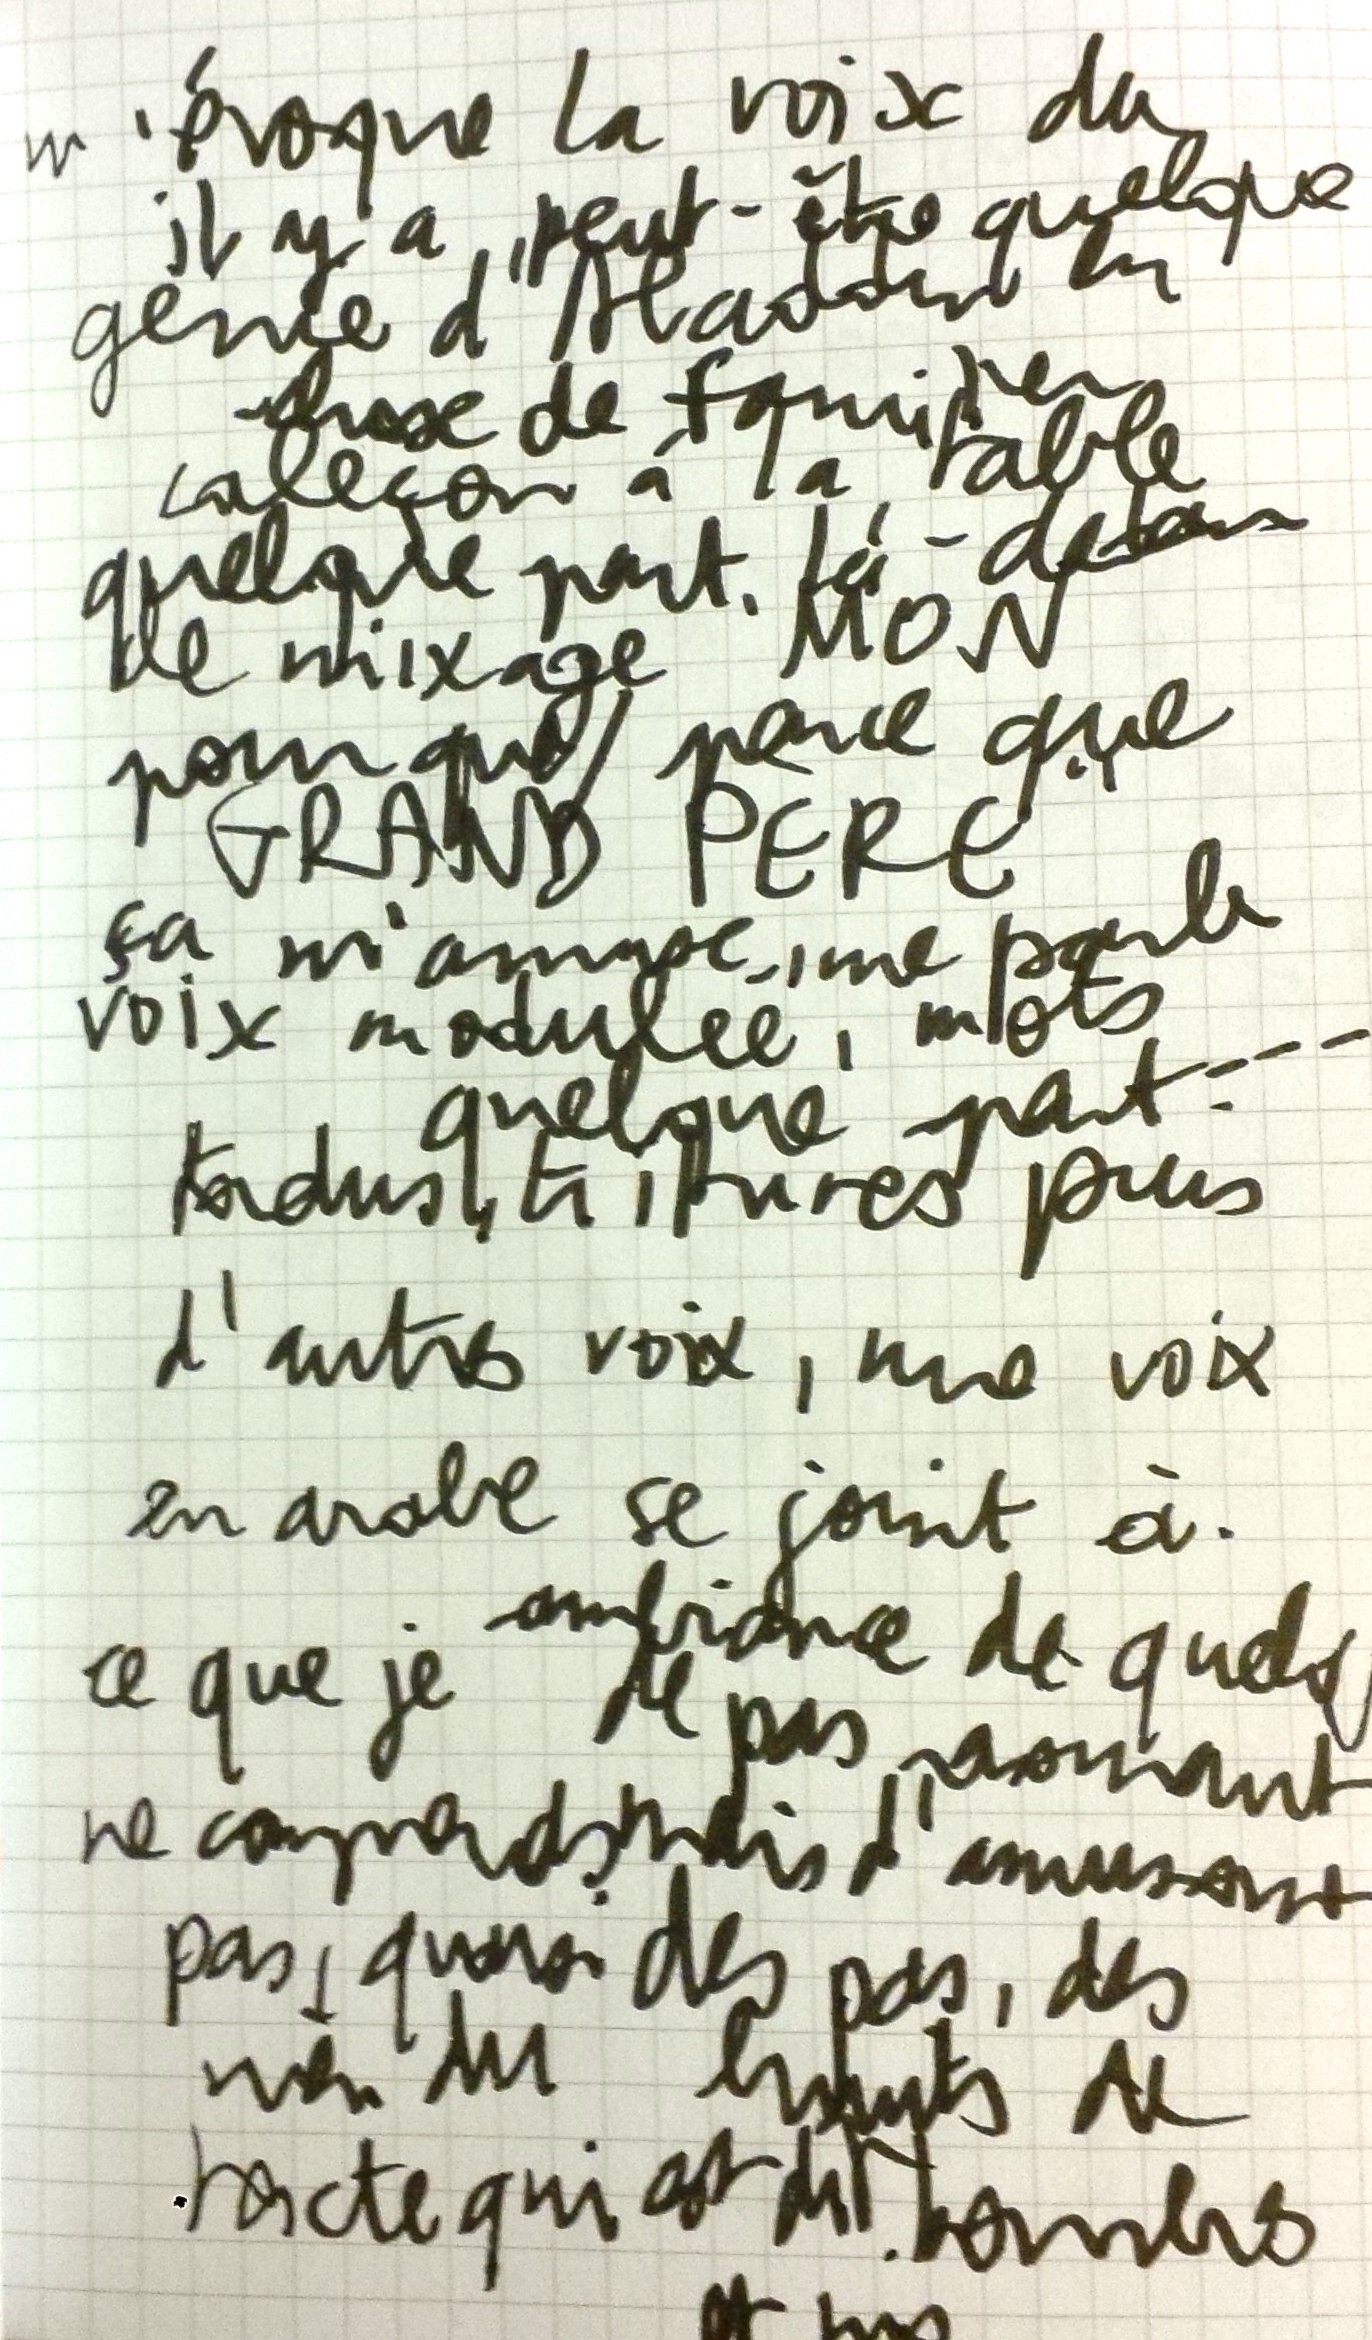 m'évoque la voix du
il y a peut-être quelque
génie d'Aladdin en
chose de familier
caleçon à la table
quelque part, là-dedans
de mixage MON
pourquoi, parce que
GRAND PERE
ça m'amuse, me parle
voix modulée, mots
quelque part ----
tordus, triturés puis
d'autres voix, une voix
en arabe se joint à.
ambiance de quelq
ce que je de pas
ne comprends mais d'amusant
pas, des pas, des
rien du bruits de
texte qui est dit. bombes
et